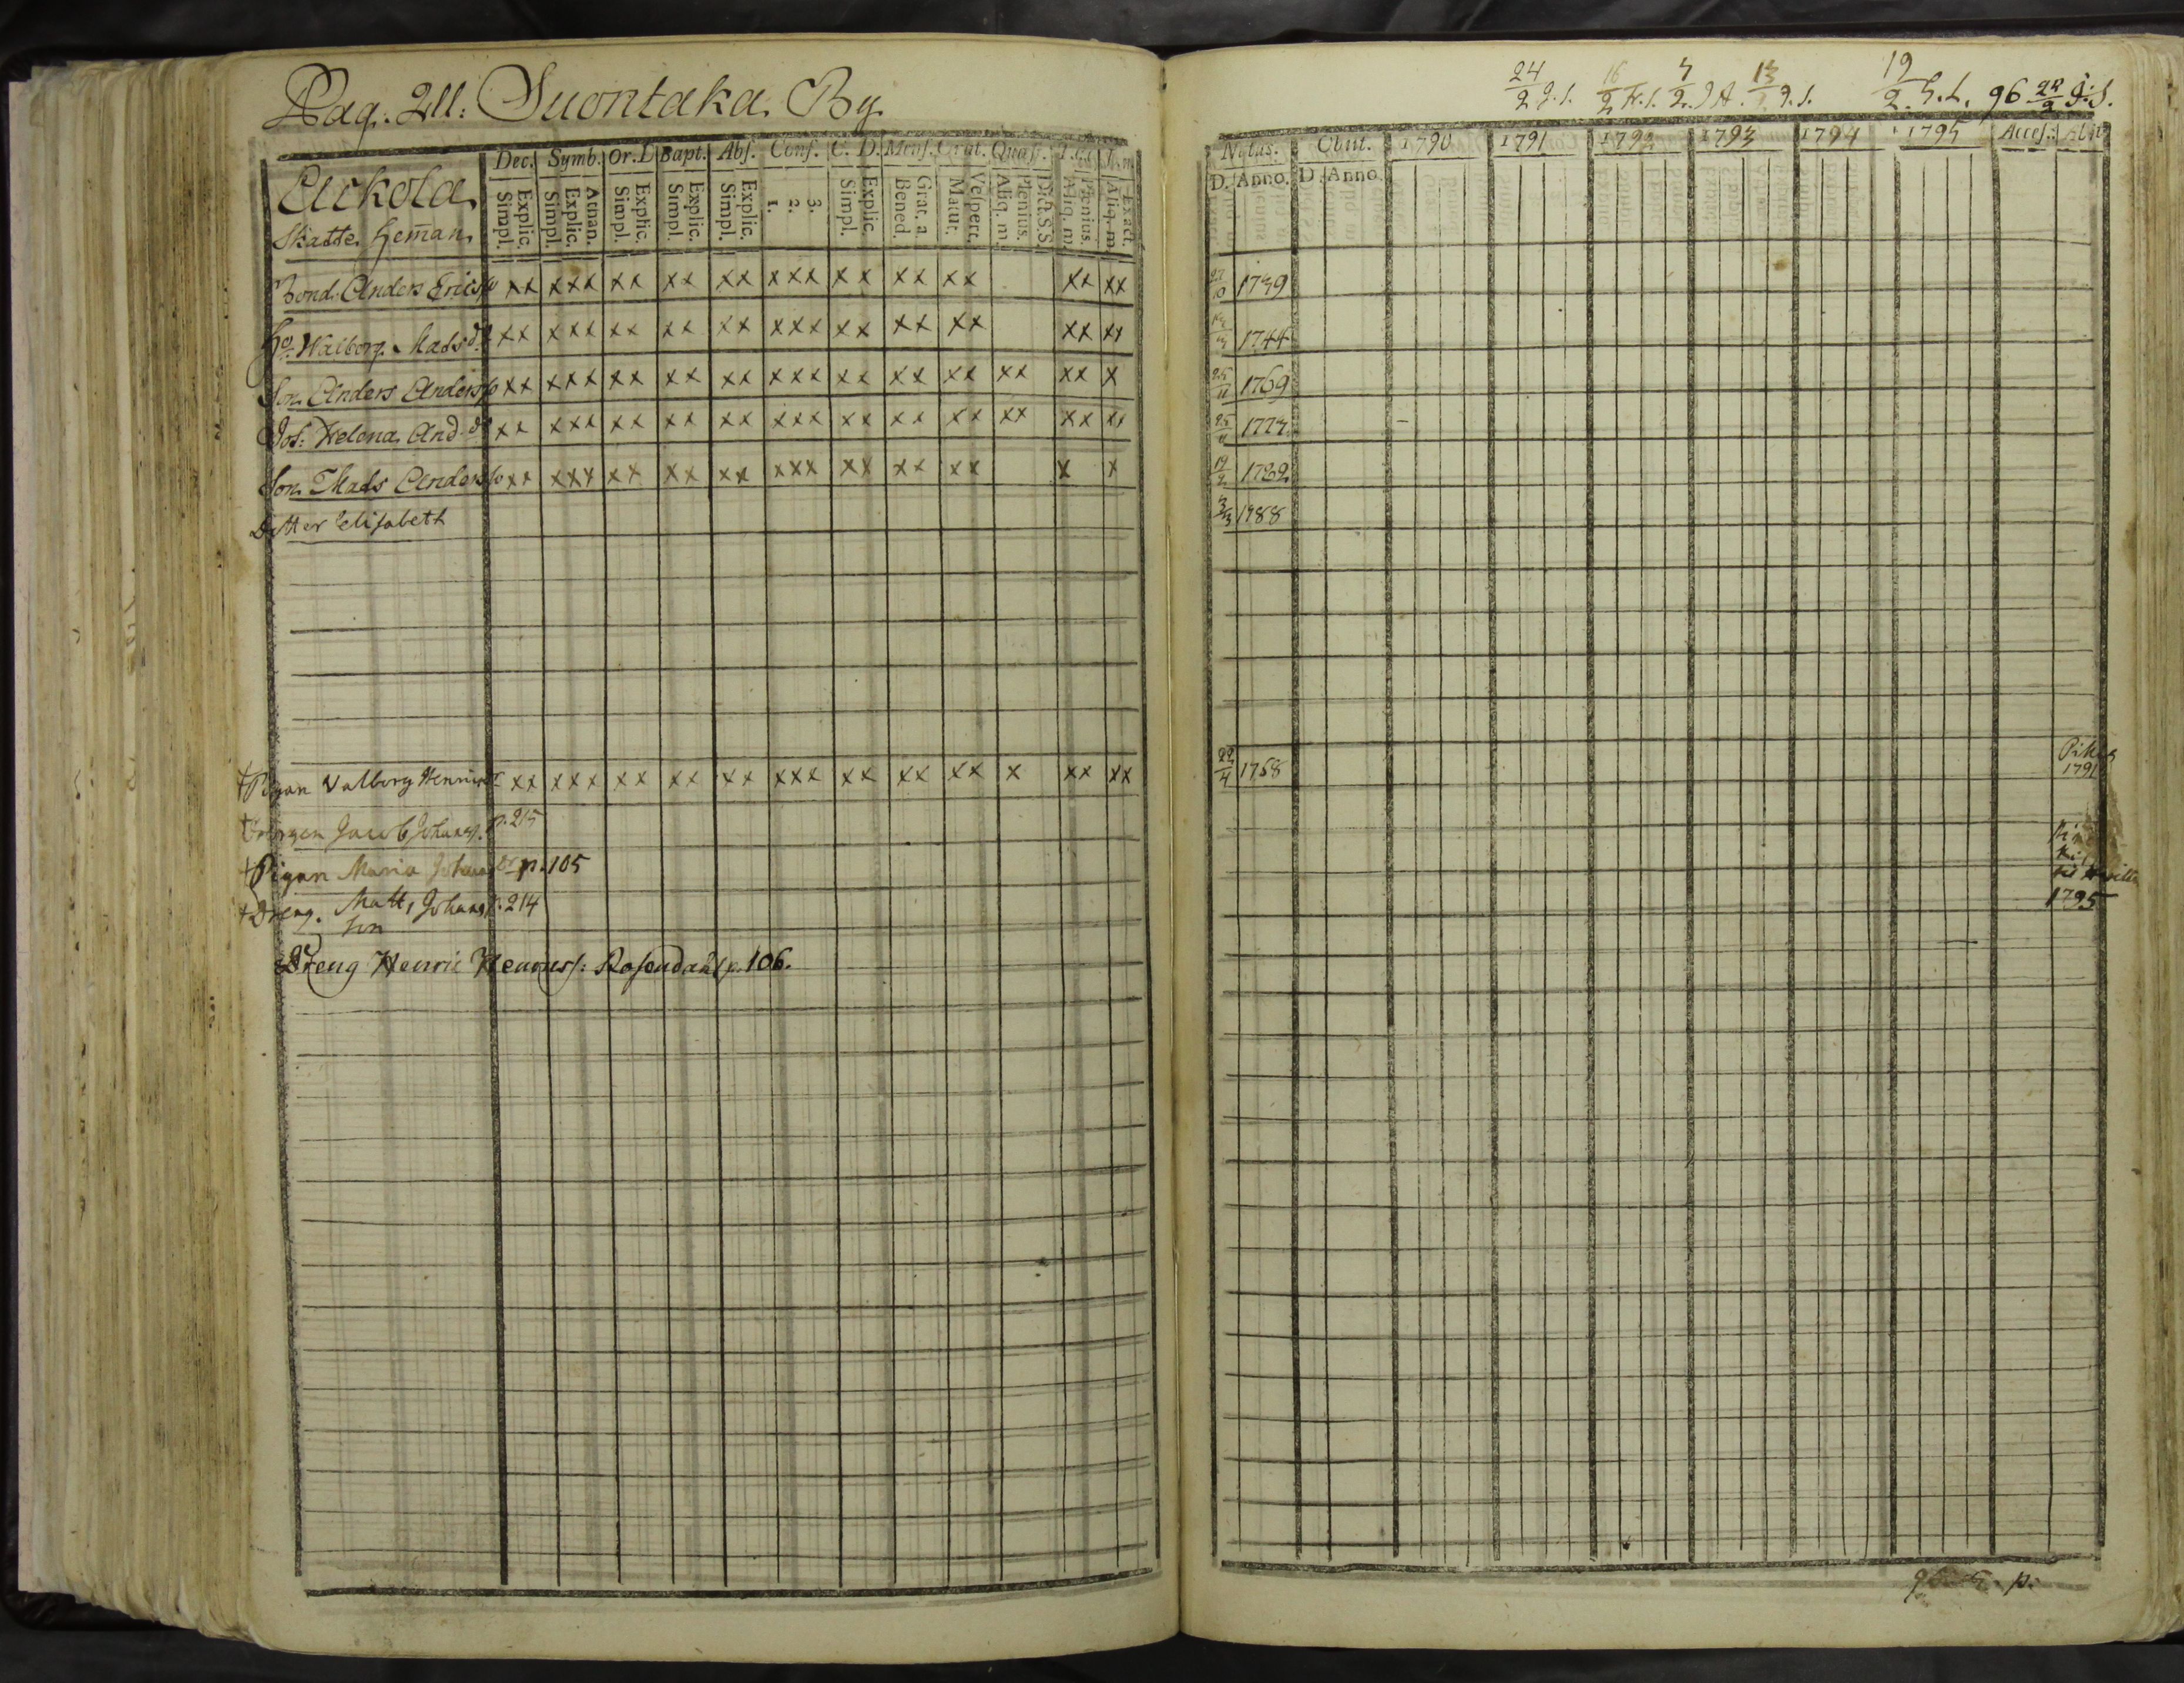 Pag. 211: Suontaka By
Dec. Symb. Or. D Bapt. Abs. Conf. C. D. Mens. Orat. Quæst.
Simpl. Explic. Simpl. Explic. Athan. Simpl. Explic. Simpl. Explic. Simpl. Explic. 1. 2. 3. Simpl. Explic. Bened. Grat. a. Matut. Vespert. Aliq. m. Plenius. Dict. S.S. Aliq. m. Plenius. Aliq. m. Exact.
Skatte Heman
Bond. Anders Erics xx xxx xx xx xx xxx xx xx xx xx xx
Hu Walborg Mats dr xx xxx xx xx xx xxx xx xx xx xx xx
Son Anders Anders xx xxx xx xx xx xxx xx xx xx xx xx x
Dot: Helena And. dr xx xxx xx xx xx xxx xx xx xx xx xx xx
Son Mats Anders xx xxx xx xx xx xxx xx xx xx x x
Dotter Elisabeth
†Pigan Valborg Henric xx xxx xx xx xx xxx xx xx xx x xx xx
Jacob Johans. p. 215
†Pigan Maria Johans dr p. 105
†Dreng. Matts Johans p. 214
son
Dreng Henric Henrics: Rosendahl p. 106.
24/2 J. S. 16/2 4/2 J A. 13 J. S. 19/2 96 22/2 J. S.
Natus. Obiit. 1790 1791 1792 1793 1794 1795 Acces. Abit
D. Anno. D. Anno
27/10 1739
1744
25/11 1769
25/11 1773
19/2 1782
3/3 1788
22/4 1758
1791
1795